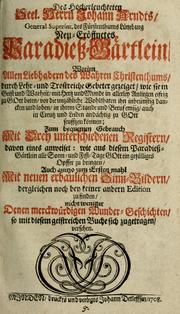 Des Hocherleuchteten
Seel. Herrn Johann Arndts,
General Superint. des Fürstenthums Lüneburg
Neu-Eröffnetes
Paradieß-Gärtlein/
Worinn
Allen Liebhabern des Wahren Christenthums,
durch Lehr- und Trostreiche Gebeter gezeiget / wie sie in
Geist und Warheit / mit Hertz und Munde in allerley Anliegen
zu Gott beten / vor die unzehlbare Wohlthaten ihm inbrünstig dancken
und loben / in ihrem Stande und Beruf
in Creutz und Leiden andächtig zu Gott
seuffzen können;
Zum bequemen Gebrauch
Mit Drey unterschiedenen Registern /
davon eines anweiset: wie aus diesem Paradieß-
Gärtlein alle Sonn- und Fest-Tage Gott ein gefälliges
Opffer zu bringen /
Auch anitzo zum Ersten mahl
Mit neuen erbaulichen Sinn-Bildern,
dergleichen noch bey keiner andern Edition
zu finden /
nicht weniger
Denen merckwürdigen Wunder-Geschichten /
so mit diesem geistreichen Buche sich zugetragen /
versehen.
MINDEN / druckts und verlegts Johann Detleffsen / 1708.